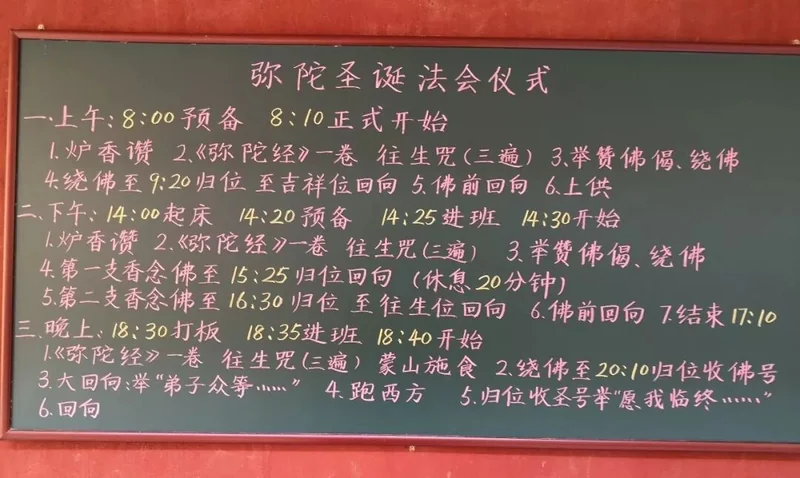 弥陀圣诞法会仪式
一.上午:8:00预备 8:10正式开始
1.炉香讚 2.《弥陀经》一卷 往生咒(三遍) 3.举赞佛偈、绕佛
4.绕佛至9:20归位 至吉祥位回向 5.佛前回向 6.上供
二、下午:14:00起床 14:20预备 14:25进班 14:30开始
1.炉香讚 2.《弥陀经》一卷 往生咒(三遍) 3.举赞佛偈、绕佛
4.第一支香念佛至15:25归位回向 (休息20分钟)
5.第二支香念佛至16:30归位 至往生位回向 6.佛前回向 7.结束17:10
三、晚上:18:30打板 18:35进班 18:40开始
1.《弥陀经》一卷 往生咒(三遍) 蒙山施食 2.绕佛至20:10归位收佛号
3.大回向:举“弟子众等……” 4.跑西方 5.归位收圣号举“愿我临终……”
6.回向